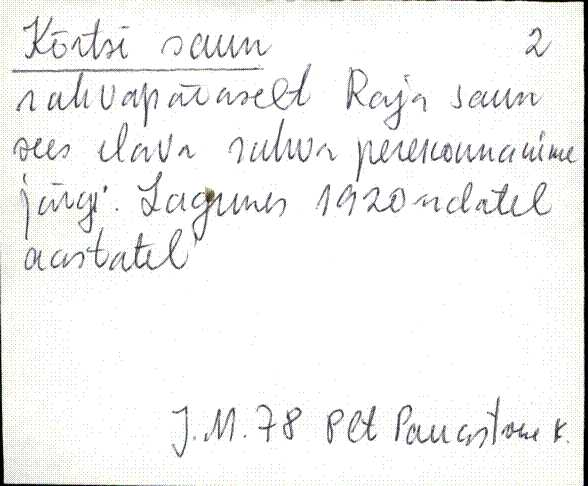 Kõrtsi saun 2
rahvapäraselt Raja saun
sees elava rahva perekonnanime
järgi. Lagunes 1920-ndatel
aastatel
J.M. 78 Plt Pancastone K.